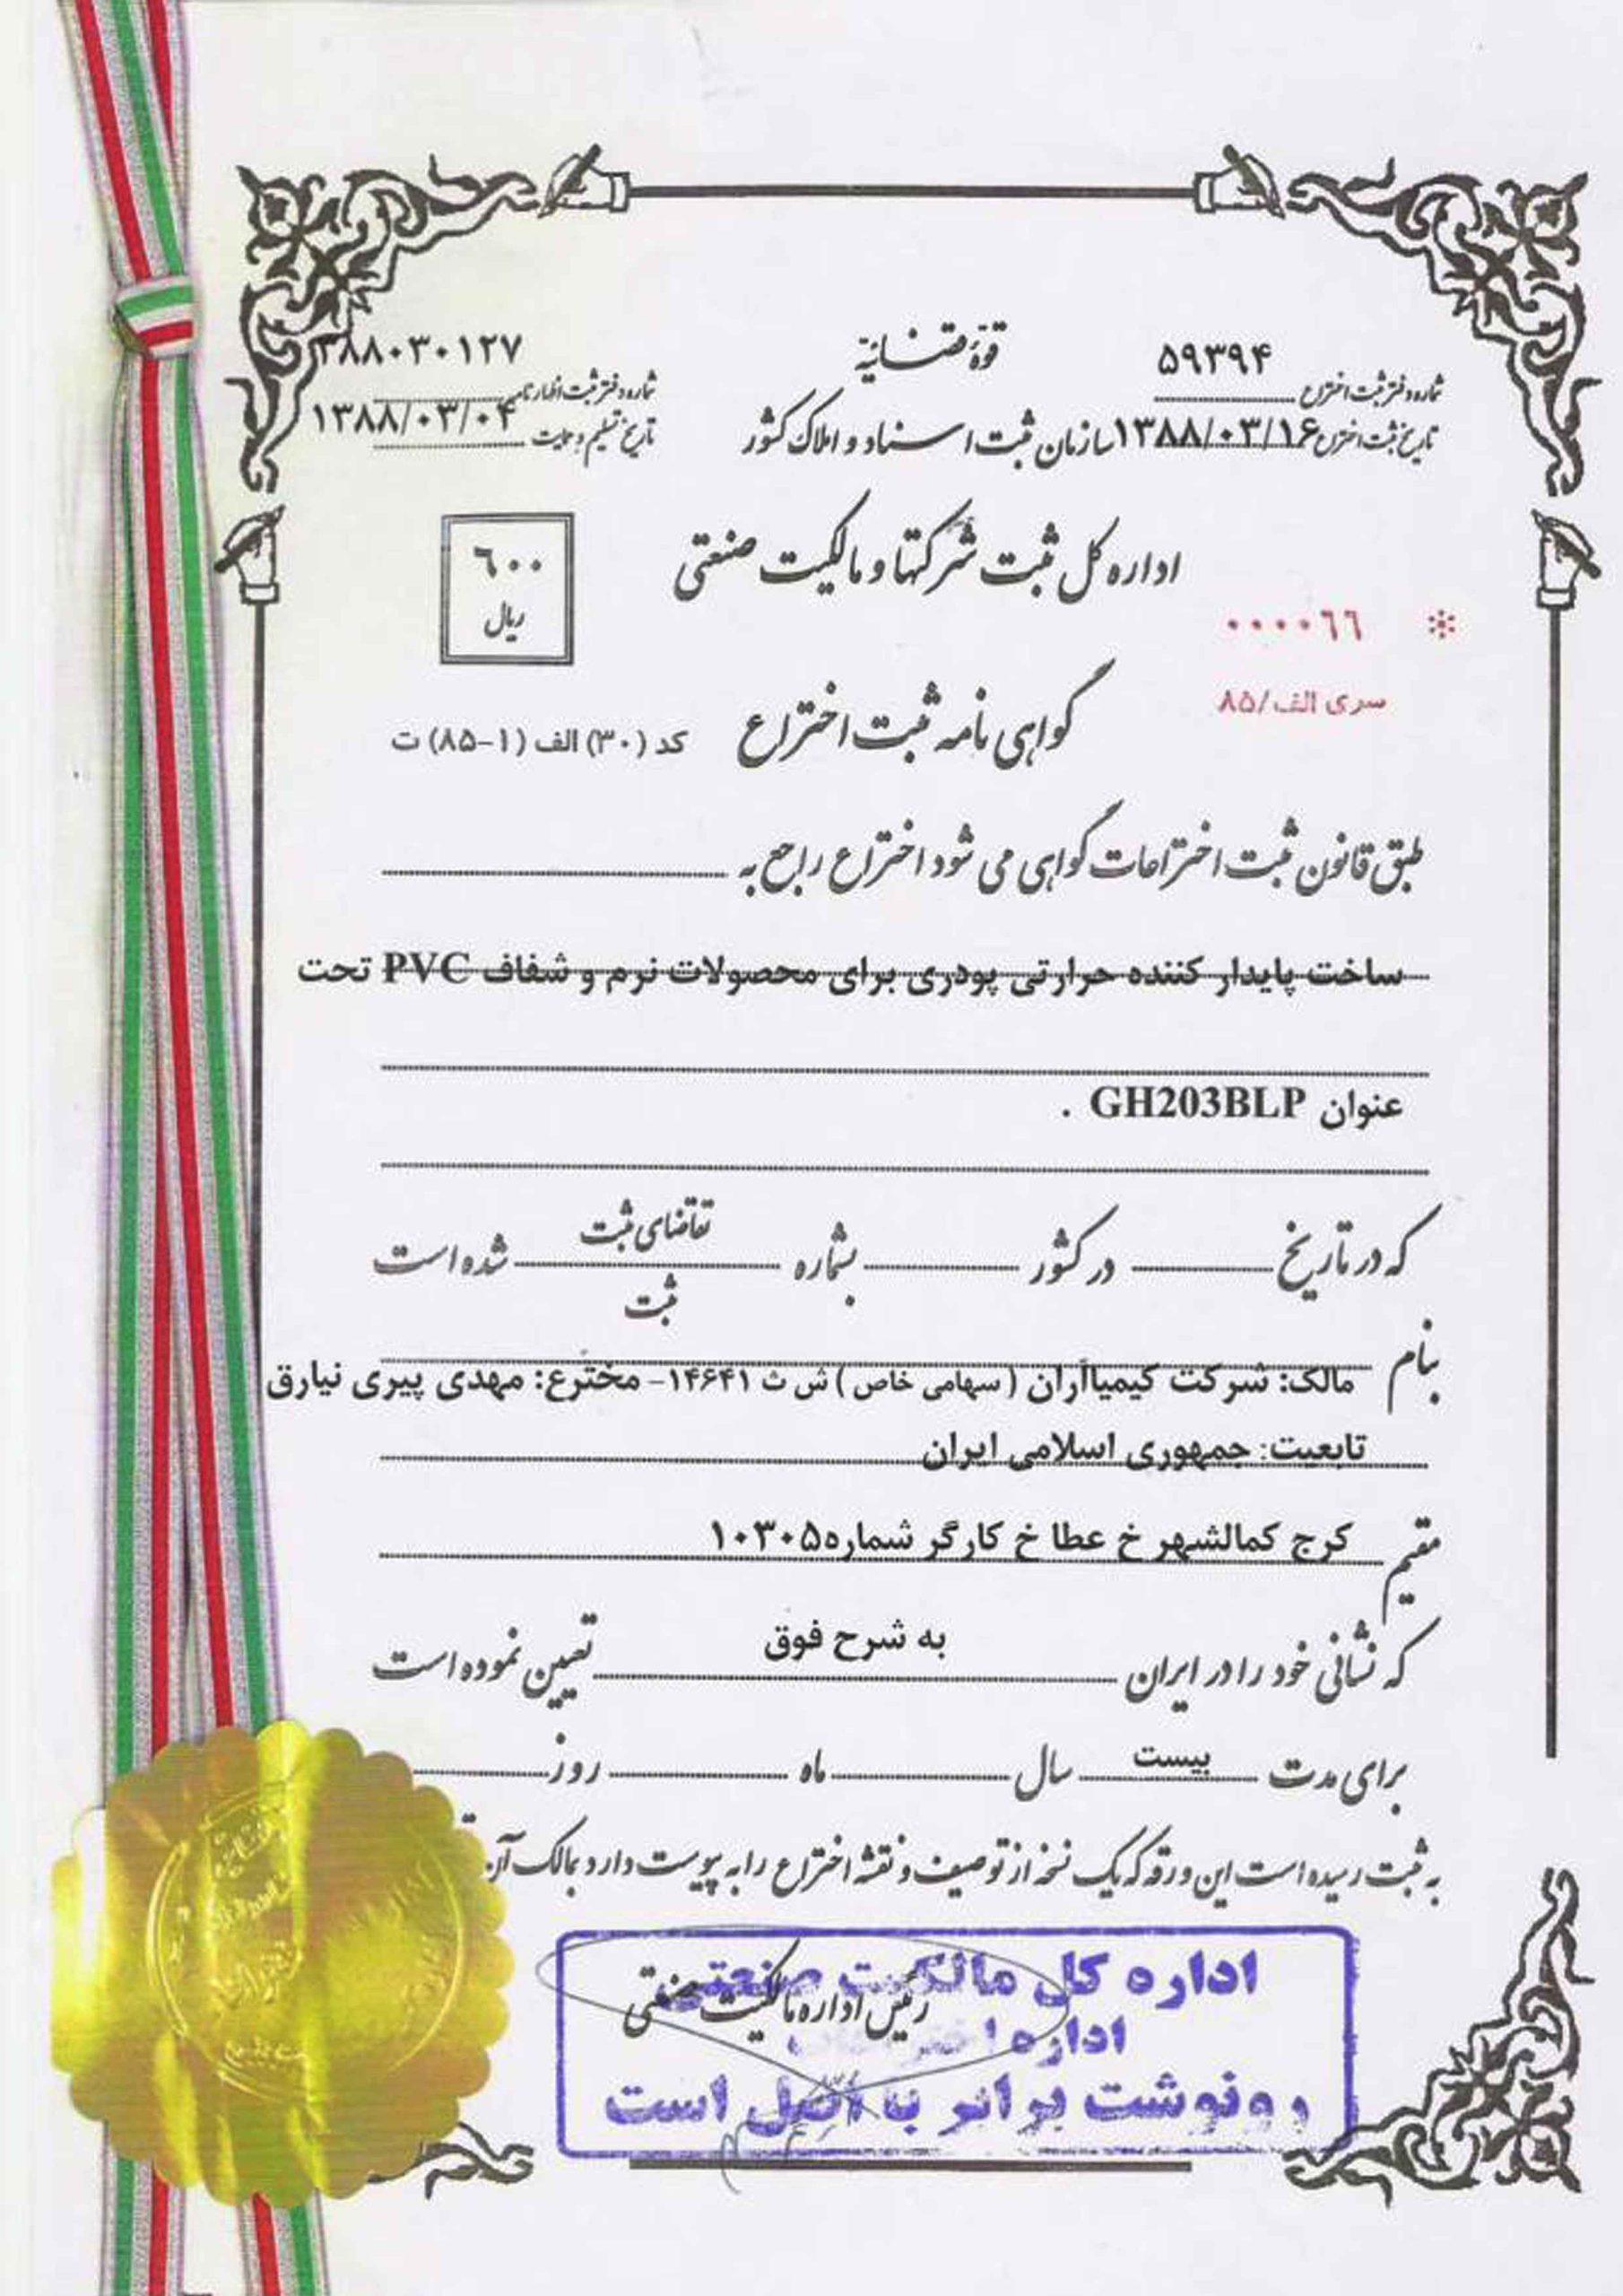 قوهٔ قضائیه
۵۹۳۹۴
شماره دفتر ثبت اختراع
۳۸۸۰۳۰۱۲۷
شماره دفتر ثبت اظهارنامه
تاریخ ثبت اختراع ۱۳۸۸/۰۳/۱۶
سازمان ثبت اسناد و املاک کشور
۱۳۸۸/۰۳/۰۴
تاریخ تسلیم و حمایت
اداره کل ثبت شرکتها و مالکیت صنعتی
۶۰۰
ریال
۰۰۰۰۶۶
سری الف/۸۵
گواهی نامه ثبت اختراع
کد (۳۰) الف (۱-۸۵) ت
طبق قانون ثبت اختراعات گواهی می شود اختراع راجع به
ساخت پایدار کننده حرارتی پودری برای محصولات نرم و شفاف PVC تحت
عنوان GH203BLP .
که در تاریخ در کشور بشماره تقاضای ثبت شده است
ثبت
بنام
مالک: شرکت کیمیاآران (سهامی خاص) ش ث ۱۴۶۴۱- مخترع: مهدی پیری نیارق
تابعیت: جمهوری اسلامی ایران
مقیم کرج کمالشهر خ عطا خ کارگر شماره۱۰۳۰۵
که نشانی خود را در ایران به شرح فوق تعیین نموده است
برای مدت بیست سال ماه روز
به ثبت رسیده است این ورقه که یک نسخه از توصیف و نقشه اختراع را به پیوست دارد بمالک آن
اداره کل مالکیت صنعتی
رئیس اداره مالکیت صنعتی
اداره
رونوشت برابر با اصل است